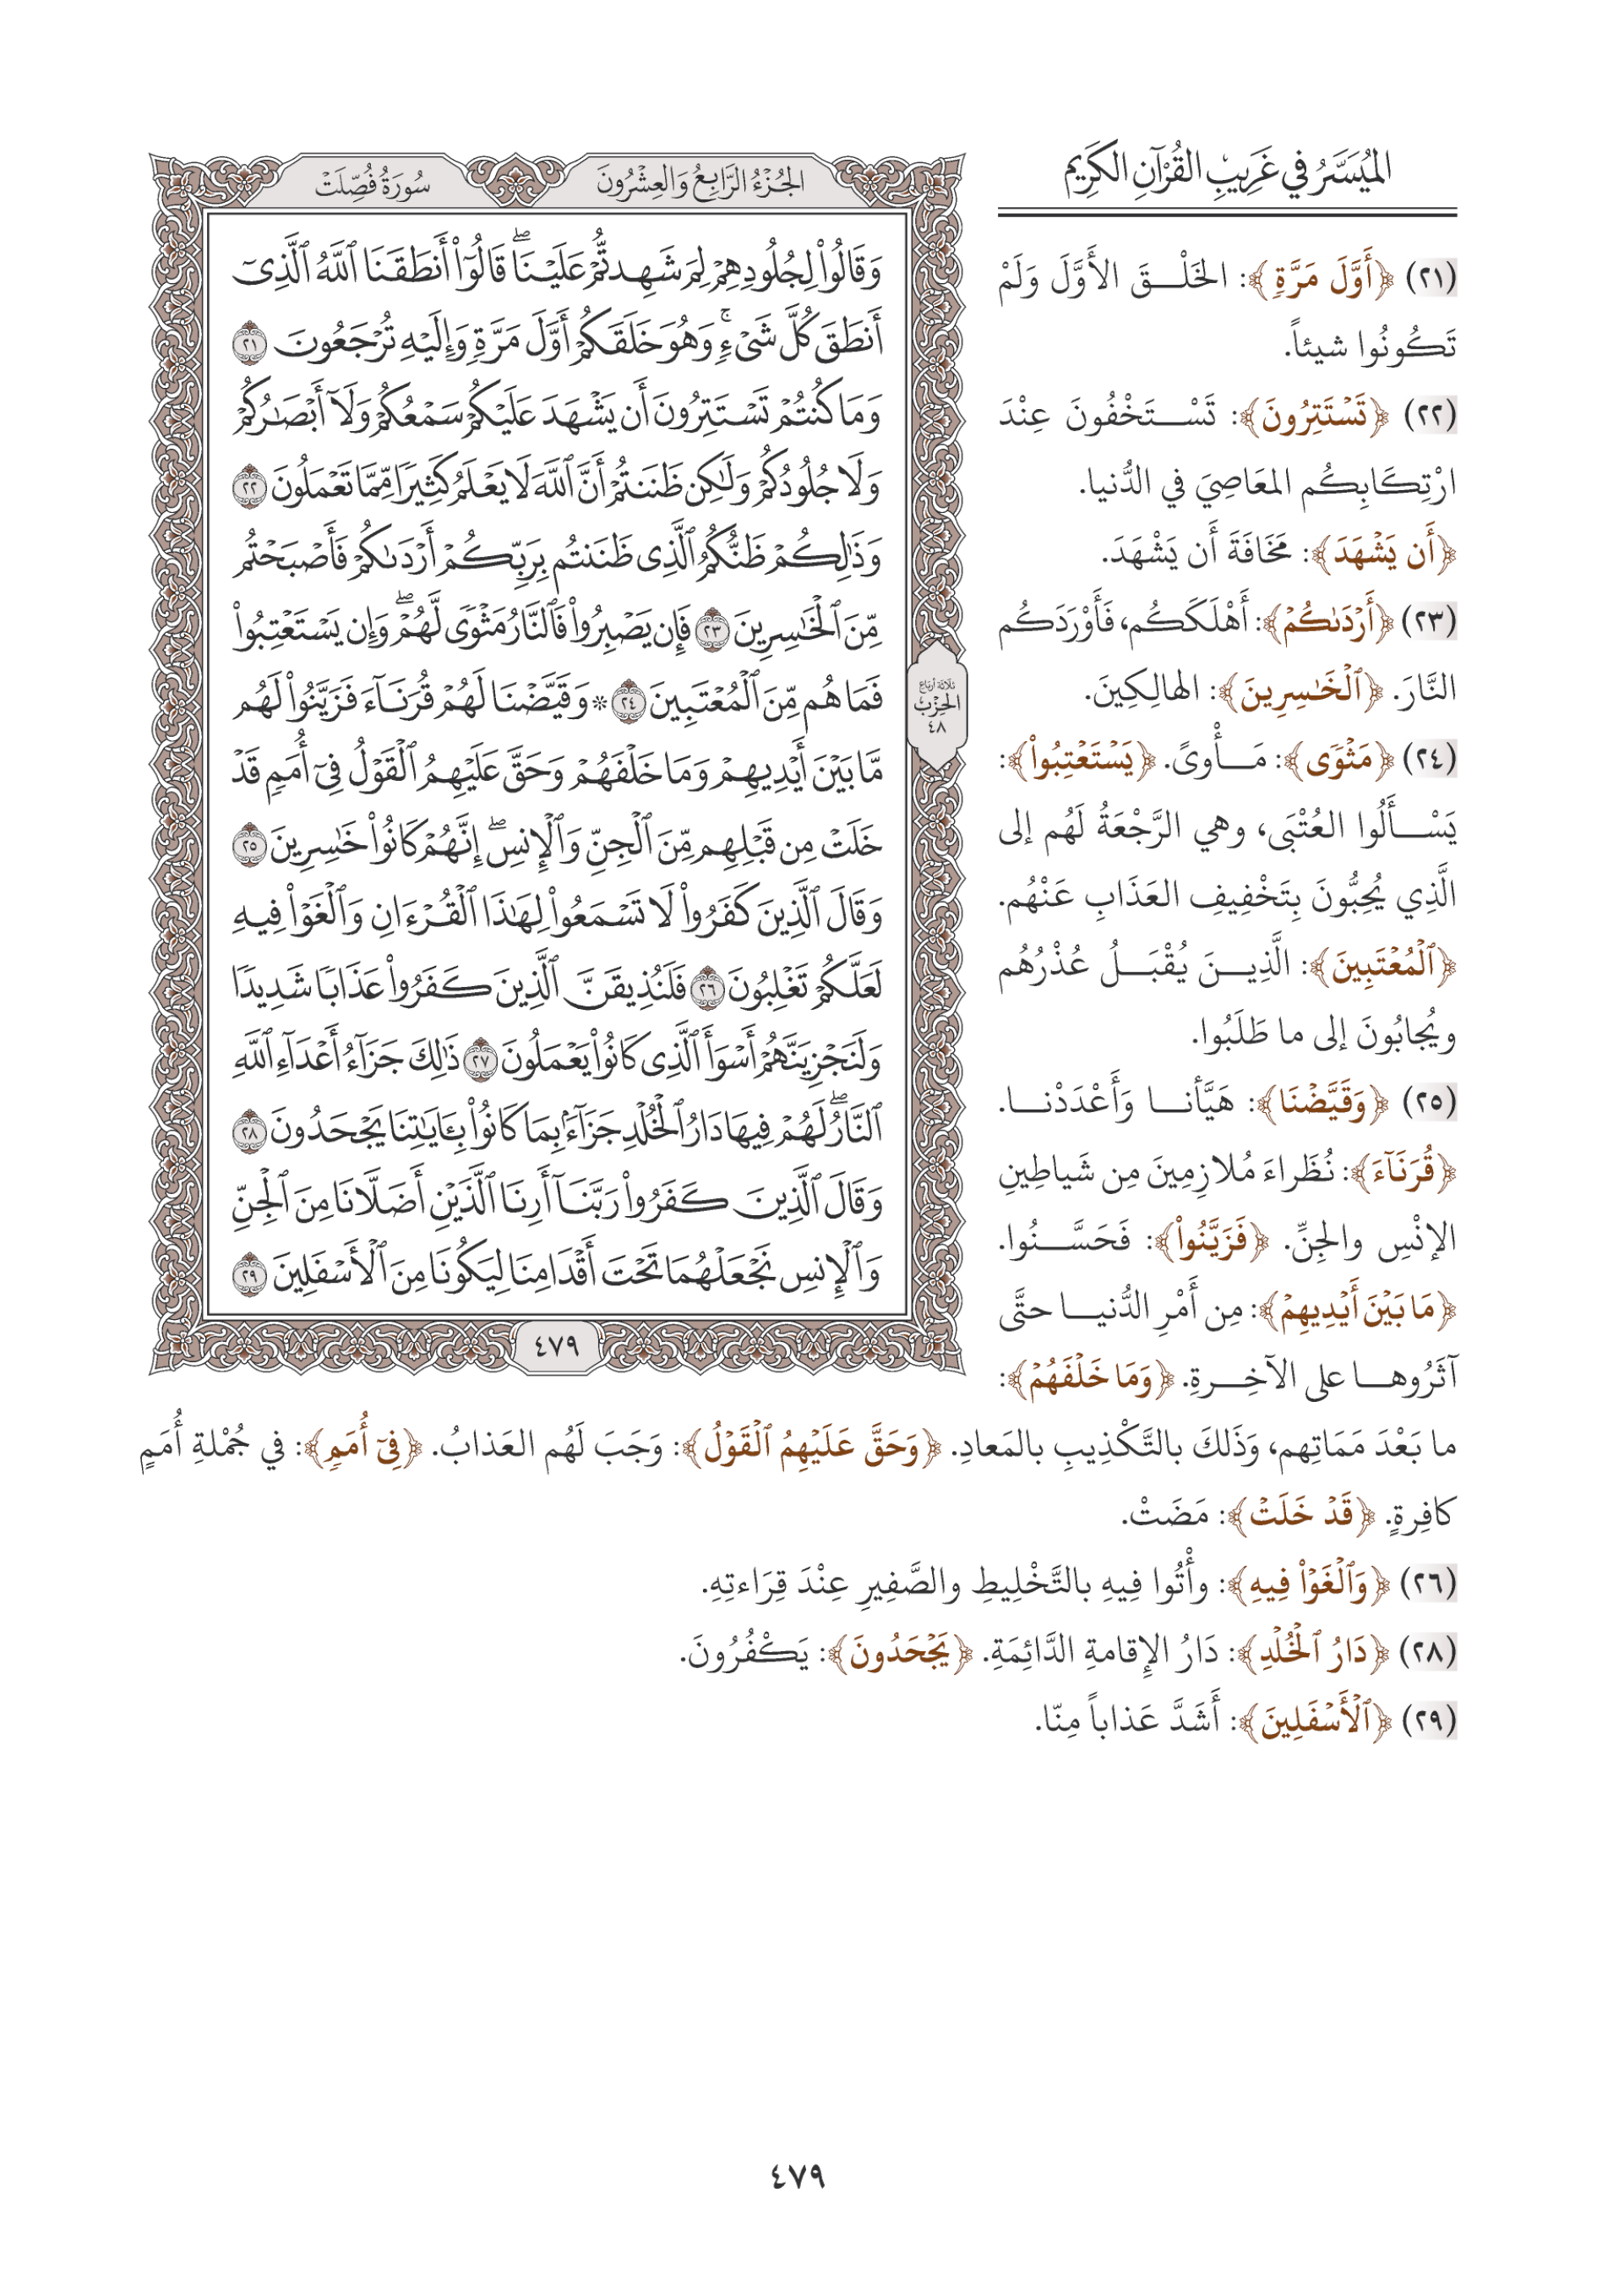 الميُسَّرُ في غَرِيبِ القُرْآنِ الكَرِيم
(٢١) ﴿أَوَّلَ مَرَّةٖ﴾: الخَلْقَ الأَوَّلَ وَلَمْ
تَكُونُوا شيئاً.
(٢٢) ﴿تَسۡتَتِرُونَ﴾: تَسْتَخْفُونَ عِنْدَ
ارْتِكَابِكُم المعَاصِيَ في الدُّنيا.
﴿أَن يَشۡهَدَ﴾: مَخَافَةَ أَن يَشْهَدَ.
(٢٣) ﴿أَرۡدَىٰكُمۡ﴾: أَهْلَكَكُم، فَأَوْرَدَكُم
النَّارَ. ﴿ٱلۡخَٰسِرِينَ﴾: الهالِكِينَ.
(٢٤) ﴿مَثۡوٗى﴾: مَأْوىً. ﴿يَسۡتَعۡتِبُواْ﴾:
يَسْأَلُوا العُتْبَى، وهي الرَّجْعَةُ لَهُم إلى
الَّذِي يُحِبُّونَ بِتَخْفِيفِ العَذَابِ عَنْهُم.
﴿ٱلۡمُعۡتَبِينَ﴾: الَّذِينَ يُقْبَلُ عُذْرُهُم
ويُجابُونَ إلى ما طَلَبُوا.
(٢٥) ﴿وَقَيَّضۡنَا﴾: هَيَّأنا وَأَعْدَدْنا.
﴿قُرَنَآءَ﴾: نُظَراءَ مُلازِمِينَ مِن شَياطِينِ
الإنْسِ والجِنِّ. ﴿فَزَيَّنُواْ﴾: فَحَسَّنُوا.
﴿مَا بَيۡنَ أَيۡدِيهِمۡ﴾: مِن أَمْرِ الدُّنيا حتَّى
آثَرُوها على الآخِرةِ. ﴿وَمَا خَلۡفَهُمۡ﴾:
ما بَعْدَ مَمَاتِهم، وَذَلكَ بالتَّكْذِيبِ بالمَعادِ. ﴿وَحَقَّ عَلَيۡهِمُ ٱلۡقَوۡلُ﴾: وَجَبَ لَهُم العَذابُ. ﴿فِيٓ أُمَمٖ﴾: في جُمْلةِ أُمَمٍ
كافِرةٍ. ﴿قَدۡ خَلَتۡ﴾: مَضَتْ.
(٢٦) ﴿وَٱلۡغَوۡاْ فِيهِ﴾: وأْتُوا فِيهِ بالتَّخْلِيطِ والصَّفِيرِ عِنْدَ قِرَاءتِهِ.
(٢٨) ﴿دَارُ ٱلۡخُلۡدِ﴾: دَارُ الإقامةِ الدَّائِمَةِ. ﴿يَجۡحَدُونَ﴾: يَكْفُرُونَ.
(٢٩) ﴿ٱلۡأَسۡفَلِينَ﴾: أَشَدَّ عَذاباً مِنّا.
الجُزْءُ الرَّابِعُ وَالعِشْرُونَ
سُورَةُ فُصِّلَتْ
وَقَالُواْ لِجُلُودِهِمۡ لِمَ شَهِدتُّمۡ عَلَيۡنَاۖ قَالُوٓاْ أَنطَقَنَا ٱللَّهُ ٱلَّذِيٓ
أَنطَقَ كُلَّ شَيۡءٖۚ وَهُوَ خَلَقَكُمۡ أَوَّلَ مَرَّةٖ وَإِلَيۡهِ تُرۡجَعُونَ ٢١
وَمَا كُنتُمۡ تَسۡتَتِرُونَ أَن يَشۡهَدَ عَلَيۡكُمۡ سَمۡعُكُمۡ وَلَآ أَبۡصَٰرُكُمۡ
وَلَا جُلُودُكُمۡ وَلَٰكِن ظَنَنتُمۡ أَنَّ ٱللَّهَ لَا يَعۡلَمُ كَثِيرٗا مِّمَّا تَعۡمَلُونَ ٢٢
وَذَٰلِكُمۡ ظَنُّكُمُ ٱلَّذِي ظَنَنتُم بِرَبِّكُمۡ أَرۡدَىٰكُمۡ فَأَصۡبَحۡتُم
مِّنَ ٱلۡخَٰسِرِينَ ٢٣ فَإِن يَصۡبِرُواْ فَٱلنَّارُ مَثۡوٗى لَّهُمۡۖ وَإِن يَسۡتَعۡتِبُواْ
فَمَا هُم مِّنَ ٱلۡمُعۡتَبِينَ ٢٤ ۞ وَقَيَّضۡنَا لَهُمۡ قُرَنَآءَ فَزَيَّنُواْ لَهُم
مَّا بَيۡنَ أَيۡدِيهِمۡ وَمَا خَلۡفَهُمۡ وَحَقَّ عَلَيۡهِمُ ٱلۡقَوۡلُ فِيٓ أُمَمٖ قَدۡ
خَلَتۡ مِن قَبۡلِهِم مِّنَ ٱلۡجِنِّ وَٱلۡإِنسِۖ إِنَّهُمۡ كَانُواْ خَٰسِرِينَ ٢٥
وَقَالَ ٱلَّذِينَ كَفَرُواْ لَا تَسۡمَعُواْ لِهَٰذَا ٱلۡقُرۡءَانِ وَٱلۡغَوۡاْ فِيهِ
لَعَلَّكُمۡ تَغۡلِبُونَ ٢٦ فَلَنُذِيقَنَّ ٱلَّذِينَ كَفَرُواْ عَذَابٗا شَدِيدٗا
وَلَنَجۡزِيَنَّهُمۡ أَسۡوَأَ ٱلَّذِي كَانُواْ يَعۡمَلُونَ ٢٧ ذَٰلِكَ جَزَآءُ أَعۡدَآءِ ٱللَّهِ
ٱلنَّارُۖ لَهُمۡ فِيهَا دَارُ ٱلۡخُلۡدِ جَزَآءَۢ بِمَا كَانُواْ بِـَٔايَٰتِنَا يَجۡحَدُونَ ٢٨
وَقَالَ ٱلَّذِينَ كَفَرُواْ رَبَّنَآ أَرِنَا ٱلَّذَيۡنِ أَضَلَّانَا مِنَ ٱلۡجِنِّ
وَٱلۡإِنسِ نَجۡعَلۡهُمَا تَحۡتَ أَقۡدَامِنَا لِيَكُونَا مِنَ ٱلۡأَسۡفَلِينَ ٢٩
ثلاثة أرباع
الحِزْب
٤٨
٤٧٩
٤٧٩